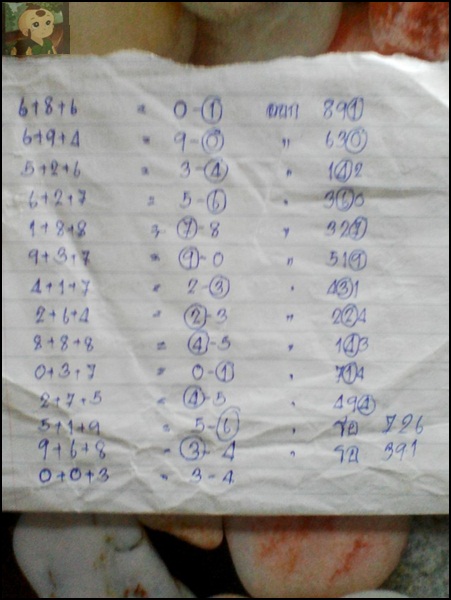 6+8+6 = 0-1 ออก 891
6+9+4 " 9-0 " 630
5+2+6 = 3-4 " 142
6+2+7 = 5-6 " 360
1+8+8 = 7-8 " 327
9+3+7 = 9-0 " 519
4+1+7 = 2-3 " 431
2+6+4 = 2-3 " 224
8+8+8 = 4-5 " 143
0+3+7 = 0-1 " 714
2+7+5 = 4-5 " 494
5+1+9 = 5-6 " 726
9+6+8 = 3-4 " 391
0+0+3 = 3-4